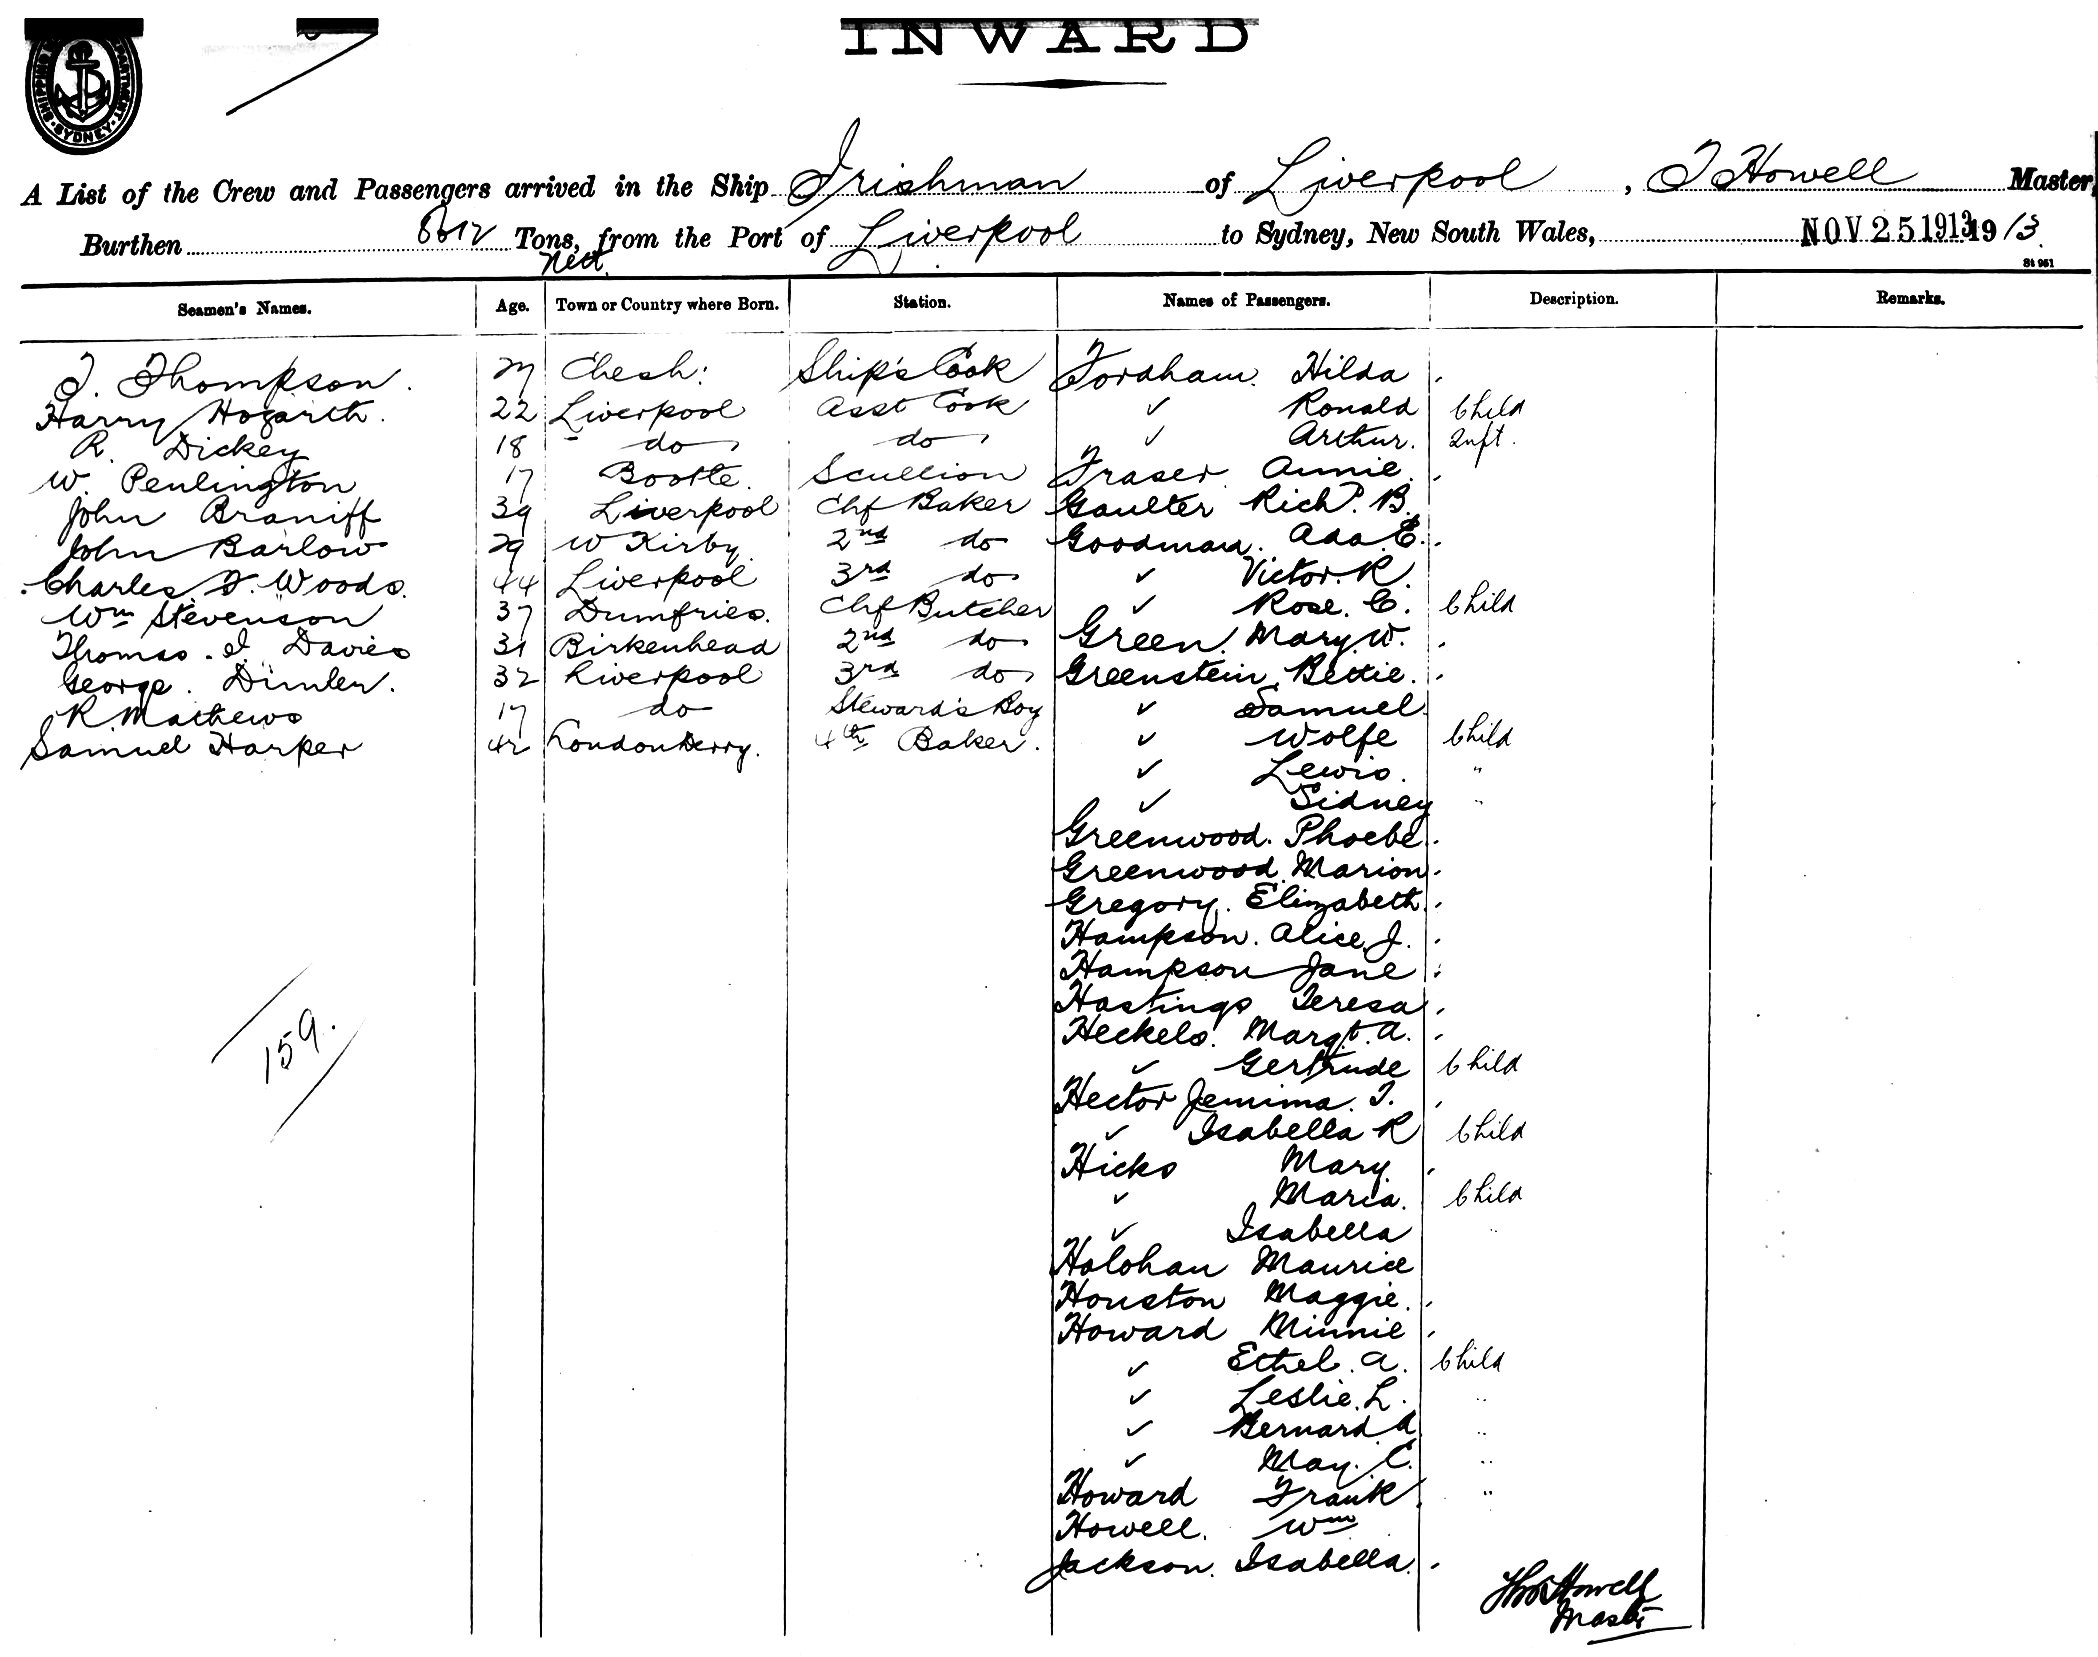 INWARD
SHIPPING DEPARTMENT SYDNEY
A List of the Crew and Passengers arrived in the Ship Irishman of Liverpool, T Howell Master,
Burthen Tons, from the Port of Liverpool to Sydney, New South Wales, NOV 25 1913 19 13.
Nett.
St 951
Seamen's Names. Age. Town or Country where Born. Station. Names of Passengers. Description. Remarks.
T. Thompson. 27 Chesh: Ship's Cook Fordham. Hilda
Harry Hogarth. 22 Liverpool Asst Cook ✓ Ronald Child
R. Dickey 18 do do ✓ Arthur. Inft.
W. Penlington 17 Bootle. Scullion Fraser Annie.
John Braniff 39 Liverpool Chf Baker Gaulter Richd. B.
John Barlow 29 W Kirby. 2nd do Goodman. Ada. E.
Charles. F. Woods. 44 Liverpool 3rd do ✓ Victor. R.
Wm Stevenson 37 Dumfries. Chf Butcher ✓ Rose. E. Child
Thomas. I. Davies 31 Birkenhead 2nd do Green. Mary. W.
George. Dimler. 32 Liverpool 3rd do Greenstein, Bettie.
R Mathews 17 do Steward's Boy ✓ Samuel
Samuel Harper 42 LondonDerry. 4th Baker. ✓ Wolfe Child
✓ Lewis. "
✓ Sidney "
Greenwood. Phoebe.
Greenwood. Marion.
Gregory. Elizabeth.
Hampson. Alice. J.
Hampson Jane
Hastings Teresa
Heckels. Margt. A.
✓ Gertrude Child
Hector Jemima. T.
✓ Isabella R Child
Hicks Mary
✓ Maria. Child
✓ Isabella "
Holohan Maurice
Houston Maggie.
Howard Minnie
✓ Ethel. A. Child
✓ Leslie. L. "
✓ Bernard A "
✓ May. C. "
Howard Frank "
Howell. Wm
Jackson. Isabella.
159.
Thos Howell
Master